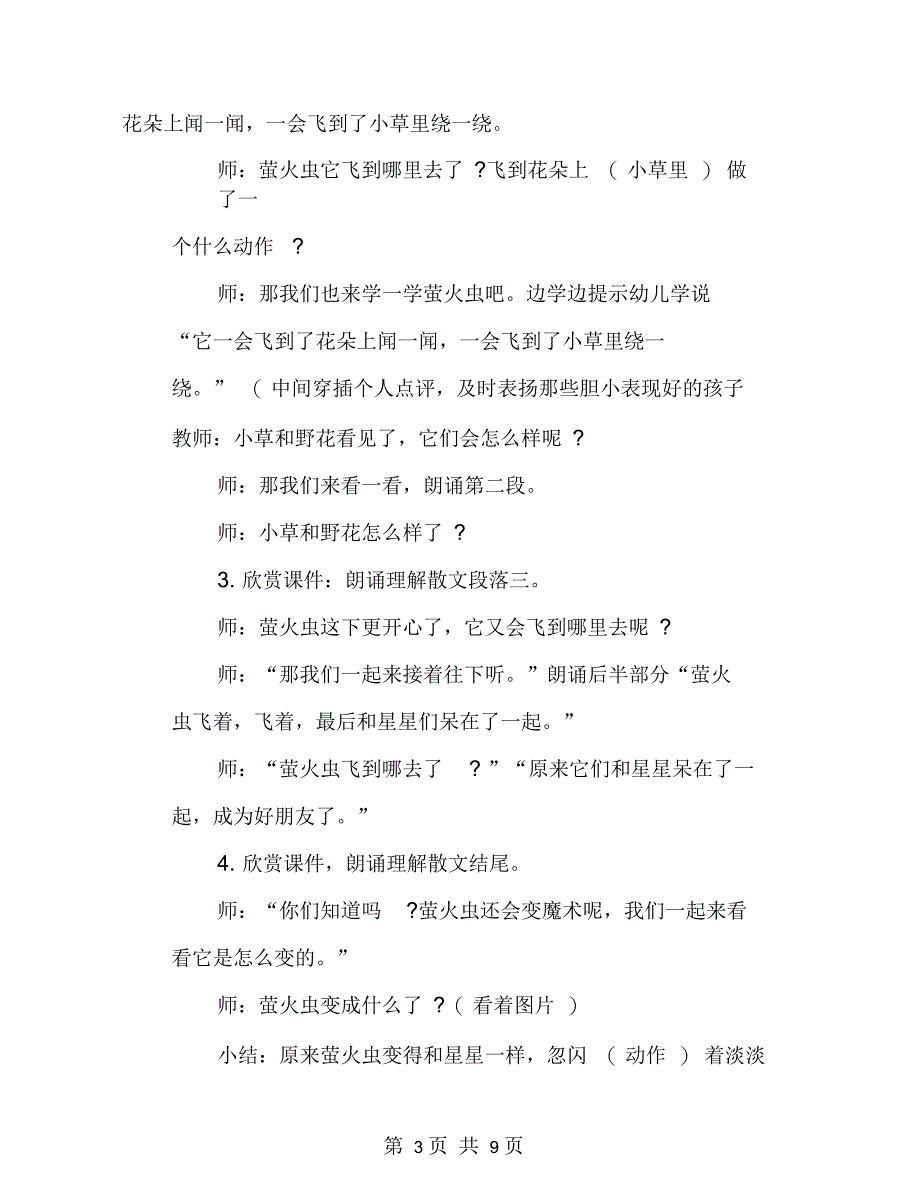 花朵上闻一闻，一会飞到了小草里绕一绕。
师：萤火虫它飞到哪里去了 ?飞到花朵上 ( 小草里 ) 做
了一
个什么动作 ?
师：那我们也来学一学萤火虫吧。边学边提示幼儿学说
“它一会飞到了花朵上闻一闻，一会飞到了小草里绕一
绕。” ( 中间穿插个人点评，及时表扬那些胆小表现好的孩子
教师：小草和野花看见了，它们会怎么样呢 ?
师：那我们来看一看，朗诵第二段。
师：小草和野花怎么样了 ?
3. 欣赏课件：朗诵理解散文段落三。
师：萤火虫这下更开心了，它又会飞到哪里去呢 ?
师：“那我们一起来接着往下听。”朗诵后半部分“萤火
虫飞着，飞着，最后和星星们呆在了一起。”
师：“萤火虫飞到哪去了 ? ”“原来它们和星星呆在了一
起，成为好朋友了。”
4. 欣赏课件，朗诵理解散文结尾。
师：“你们知道吗 ?萤火虫还会变魔术呢，我们一起来看
看它是怎么变的。”
师：萤火虫变成什么了 ? ( 看着图片 )
小结：原来萤火虫变得和星星一样，忽闪 ( 动作 ) 着淡淡
第 3页 共 9页